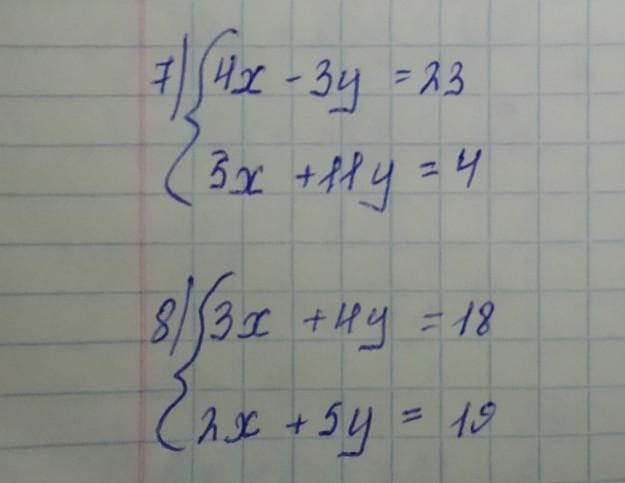 7) { 4x - 3y = 23
3x + 11y = 4
8) { 3x + 4y = 18
2x + 5y = 19